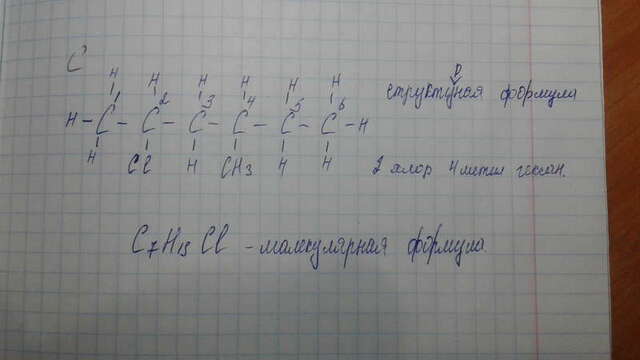 C
H H H H H H
H - C¹ - C² - C³ - C⁴ - C⁵ - C⁶ - H
H Cl H CH3 H H
структурная формула
2 хлор 4 метил гексан.
C7H15Cl - молекулярная формула